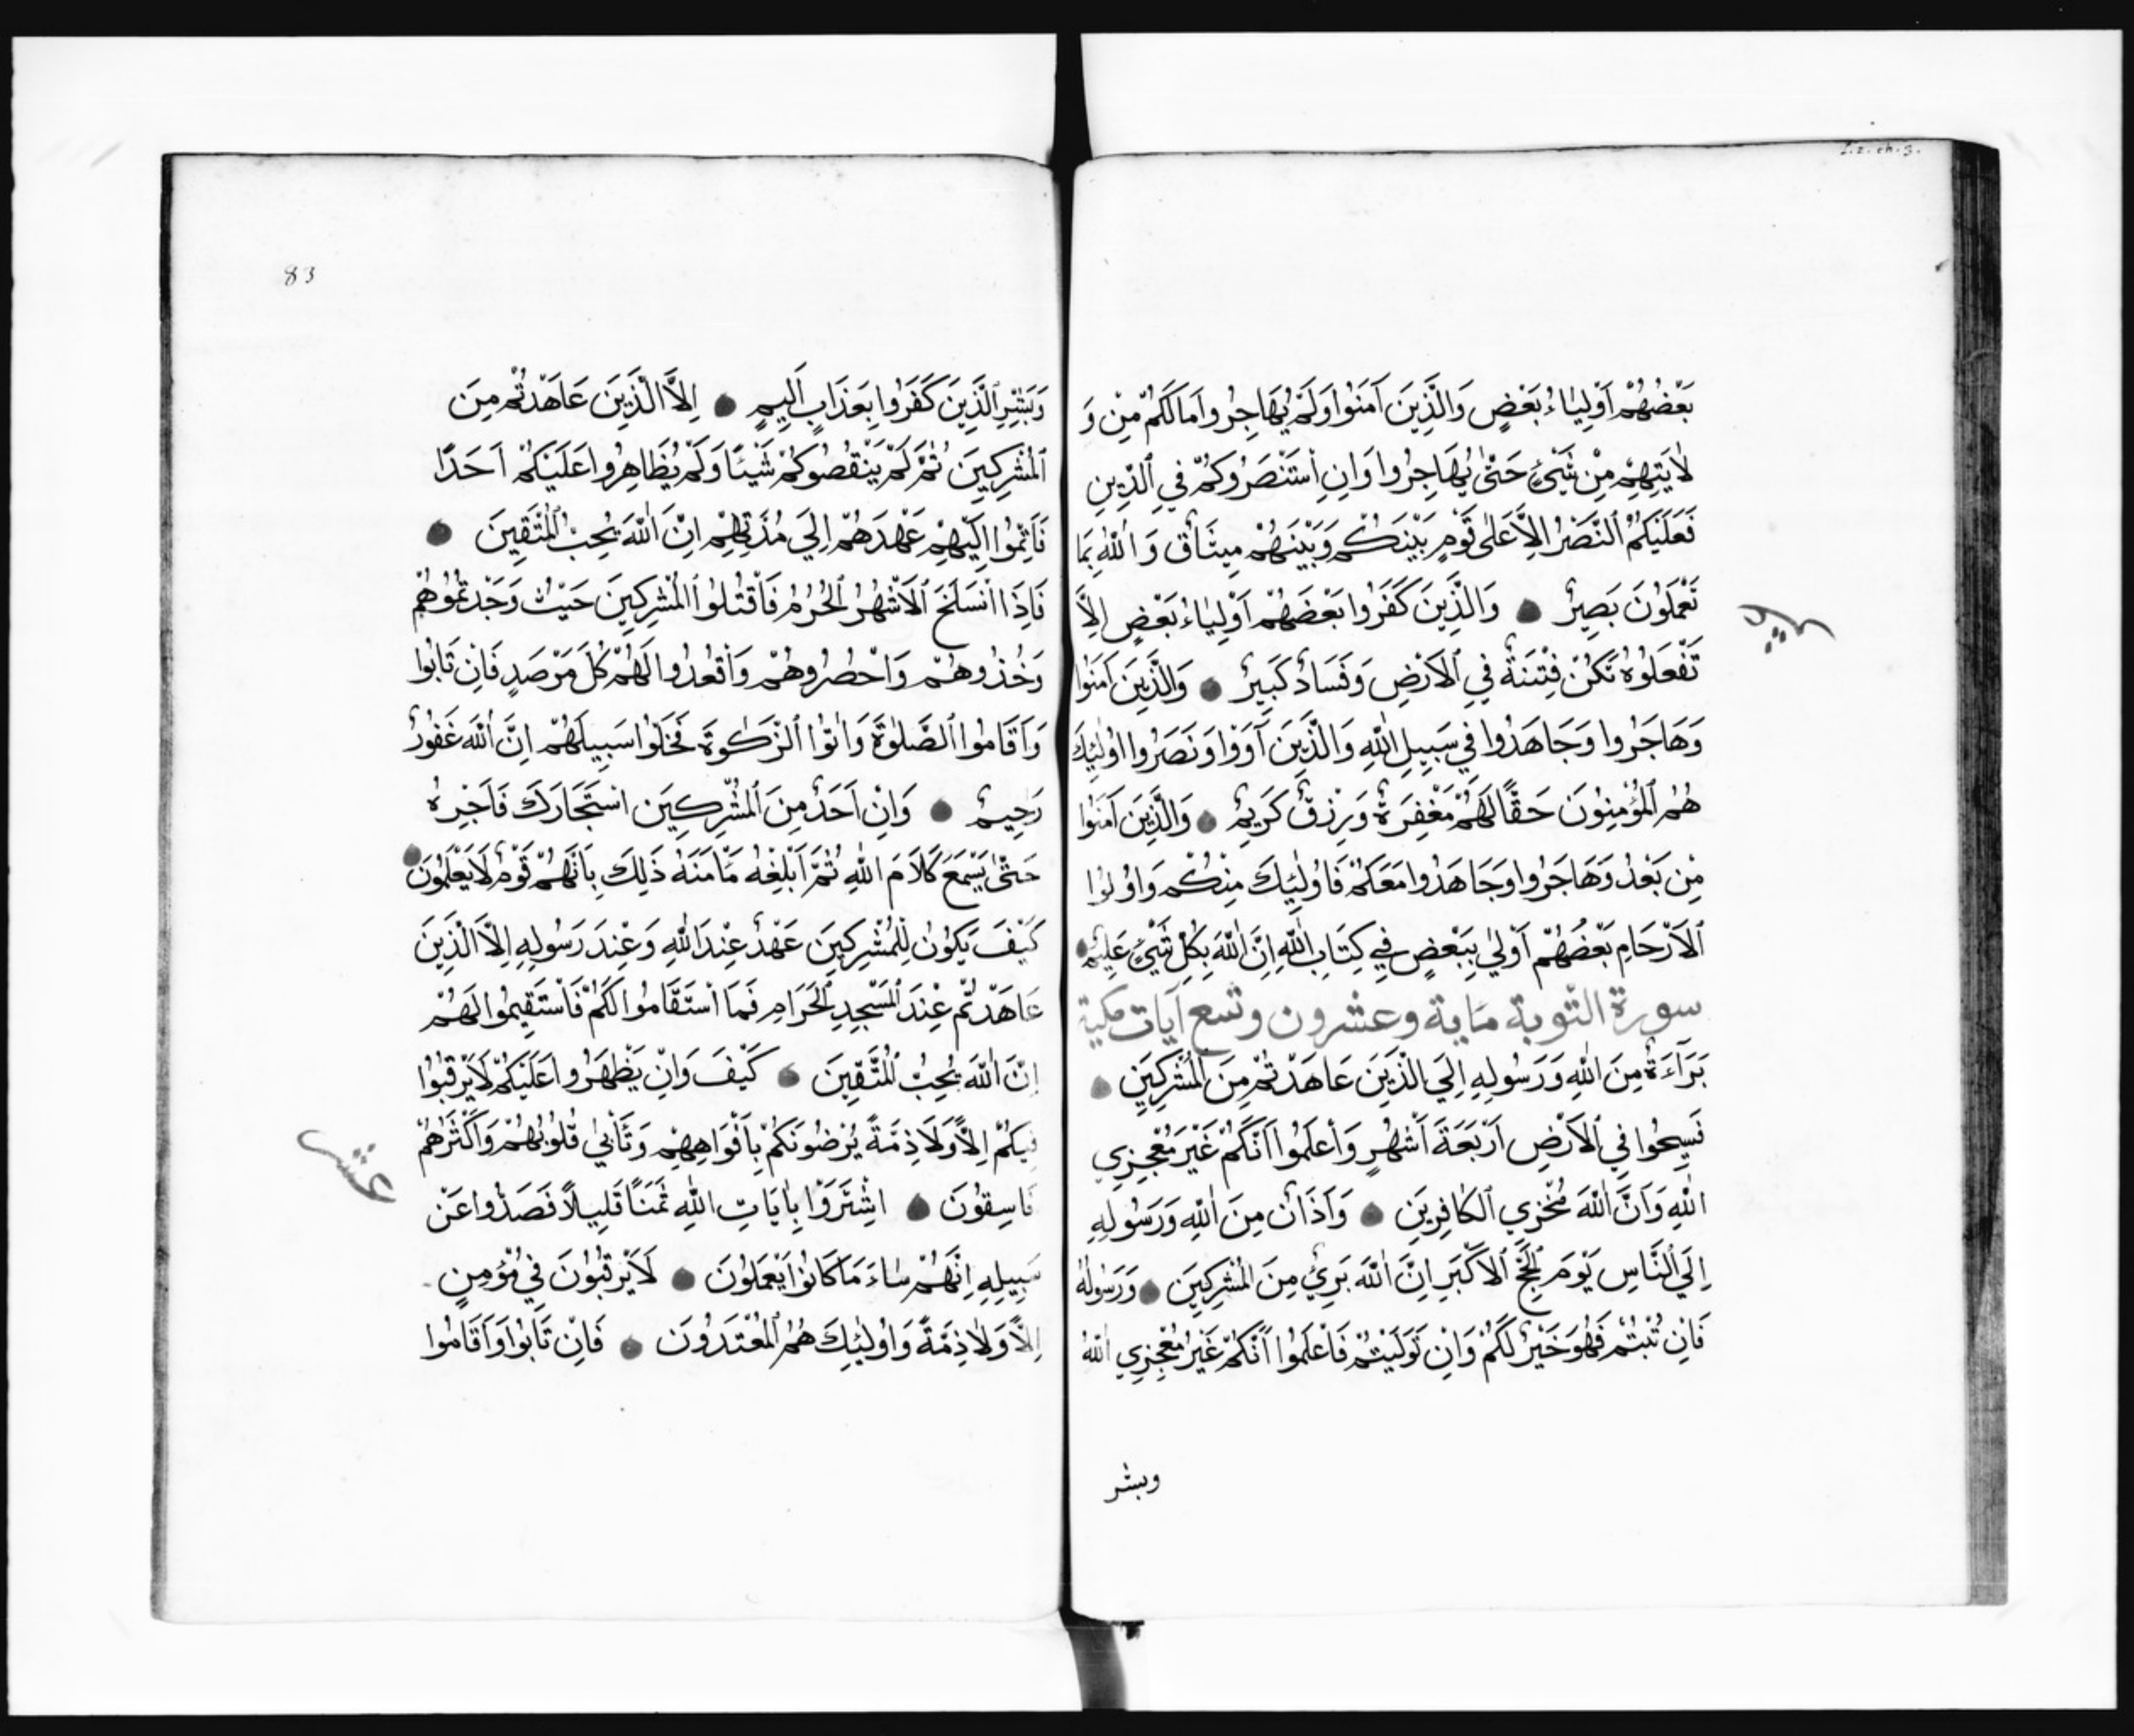 L.2. ch. 3.
بَعْضُهُمْ اَوْلِيَاءُ بَعْضٍ وَالَّذِينَ آمَنُوا وَلَمْ يُهَاجِرُوا مَالَكُمْ مِنْ وَ
لَايَتِهِمْ مِنْ شَيْءٍ حَتّٰى يُهَاجِرُوا وَاِنِ اسْتَنْصَرُوكُمْ فِي الدِّينِ
فَعَلَيْكُمْ النَّصْرُ اِلَّا عَلٰى قَوْمٍ بَيْنَكُمْ وَبَيْنَهُمْ مِيثَاقٌ وَاللّٰهُ بِمَا
تَعْمَلُوْنَ بَصِيرٌ وَالَّذِينَ كَفَرُوا بَعْضَهُمْ اَوْلِيَاءُ بَعْضٍ اِلَّا
تَفْعَلُوْهُ تَكُنْ فِتْنَةٌ فِي الْاَرْضِ وَفَسَادٌ كَبِيرٌ وَالَّذِينَ آمَنُوا
وَهَاجَرُوا وَجَاهَدُوا فِي سَبِيلِ اللّٰهِ وَالَّذِينَ آوَوْا وَنَصَرُوا اُوْلٰئِكَ
هُمُ الْمُؤْمِنُوْنَ حَقًّا لَهُمْ مَغْفِرَةٌ وَرِزْقٌ كَرِيمٌ وَالَّذِينَ آمَنُوا
مِنْ بَعْدُ وَهَاجَرُوا وَجَاهَدُوا مَعَكُمْ فَاُوْلٰئِكَ مِنْكُمْ وَاُوْلُوا
الْاَرْحَامِ بَعْضُهُمْ اَوْلٰي بِبَعْضٍ فِي كِتَابِ اللّٰهِ اِنَّ اللّٰهَ بِكُلِّ شَيْءٍ عَلِيمٌ
سورة التوبة ماية وعشرون وتسع آيات مكية
بَرَآءَةٌ مِنَ اللّٰهِ وَرَسُولِهِ اِلَي الَّذِينَ عَاهَدْتُمْ مِنَ الْمُشْرِكِينَ
فَسِيحُوا فِي الْاَرْضِ اَرْبَعَةَ اَشْهُرٍ وَاعْلَمُوا اَنَّكُمْ غَيْرَ مُعْجِزِي
اللّٰهِ وَاَنَّ اللّٰهَ مُخْزِي الْكَافِرِينَ وَاَذَانٌ مِنَ اللّٰهِ وَرَسُولِهِ
اِلَي النَّاسِ يَوْمَ الْحَجِّ الْاَكْبَرِ اِنَّ اللّٰهَ بَرِيءٌ مِنَ الْمُشْرِكِينَ وَرَسُولُهُ
فَاِنْ تُبْتُمْ فَهُوَ خَيْرٌ لَكُمْ وَاِنْ تَوَلَّيْتُمْ فَاعْلَمُوا اَنَّكُمْ غَيْرُ مُعْجِزِي اللّٰهُ
وبشر
83
وَبَشِّرِ الَّذِينَ كَفَرُوا بِعَذَابٍ اَلِيمٍ اِلَّا الَّذِينَ عَاهَدْتُمْ مِنَ
الْمُشْرِكِينَ ثُمَّ لَمْ يَنْقُصُوكُمْ شَيْئًا وَلَمْ يُظَاهِرُوا عَلَيْكُمْ اَحَدًا
فَاَتِمُّوا اِلَيْهِمْ عَهْدَهُمْ اِلَي مُدَّتِهِمْ اِنَّ اللّٰهَ يُحِبُّ الْمُتَّقِينَ
فَاِذَا انْسَلَخَ الْاَشْهُرُ الْحُرُمُ فَاقْتُلُوا الْمُشْرِكِينَ حَيْثُ وَجَدْتُمُوْهُمْ
وَخُذُوهُمْ وَاحْصُرُوهُمْ وَاقْعُدُوا لَهُمْ كُلَّ مَرْصَدٍ فَاِنْ تَابُوا
وَاَقَامُوا الصَّلٰوةَ وَاٰتَوُا الزَّكٰوةَ فَخَلُّوا سَبِيلَهُمْ اِنَّ اللّٰهَ غَفُوْرٌ
رَحِيمٌ وَاِنْ اَحَدٌ مِنَ الْمُشْرِكِينَ اسْتَجَارَكَ فَاَجِرْهُ
حَتّٰى يَسْمَعَ كَلَامَ اللّٰهِ ثُمَّ اَبْلِغْهُ مَاْمَنَهُ ذٰلِكَ بِاَنَّهُمْ قَوْمٌ لَا يَعْلَمُوْنَ
كَيْفَ يَكُوْنُ لِلْمُشْرِكِينَ عَهْدٌ عِنْدَ اللّٰهِ وَعِنْدَ رَسُولِهِ اِلَّا الَّذِينَ
عَاهَدْتُمْ عِنْدَ الْمَسْجِدِ الْحَرَامِ فَمَا اسْتَقَامُوا لَكُمْ فَاسْتَقِيمُوا لَهُمْ
اِنَّ اللّٰهَ يُحِبُّ الْمُتَّقِينَ كَيْفَ وَاِنْ يَظْهَرُوا عَلَيْكُمْ لَا يَرْقُبُوْا
فِيكُمْ اِلًّا وَلَا ذِمَّةً يُرْضُونَكُمْ بِاَفْوَاهِهِمْ وَتَاْبٰي قُلُوْبُهُمْ وَاَكْثَرُهُمْ
فَاسِقُوْنَ اشْتَرَوْا بِاٰيَاتِ اللّٰهِ ثَمَنًا قَلِيلًا فَصَدُّوا عَنْ
سَبِيلِهِ اِنَّهُمْ سَاءَ مَا كَانُوْا يَعْمَلُوْنَ لَا يَرْقُبُوْنَ فِي مُؤْمِنٍ
اِلًّا وَلَا ذِمَّةً وَاُوْلٰئِكَ هُمُ الْمُعْتَدُوْنَ فَاِنْ تَابُوْا وَاَقَامُوا
عشر